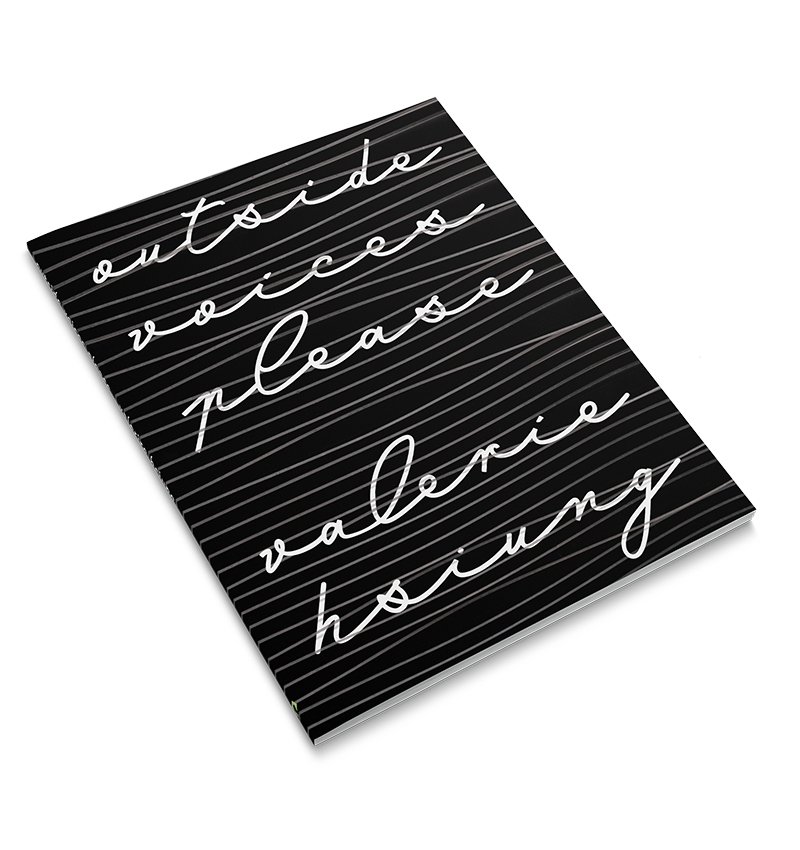 outside
voices
please
valerie
hsiung